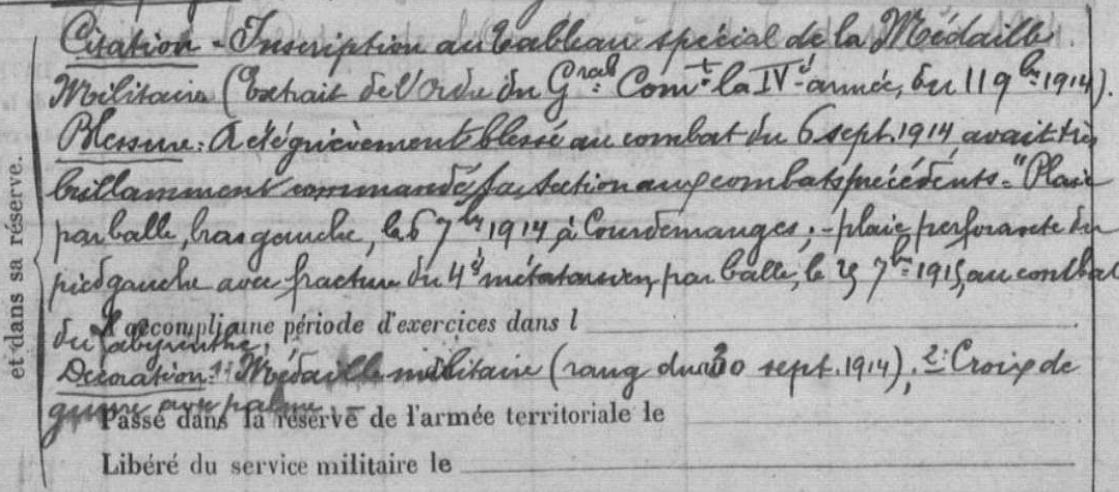 Citation - Inscription au tableau spécial de la Médaille
Militaire (Extrait de l'Ordre du Gral Comt la IVe armée, du 11 9bre 1914).
Blessure : A été grièvement blessé au combat du 6 sept. 1914, avait très
brillamment commandé sa section aux combats précédents. "Plaie
par balle, bras gauche, le 6 7bre 1914, à Courdemanges ; - plaie perforante du
pied gauche avec fracture du 4e métatarsien, par balle, le 25 7bre 1915, au combat
du Labyrinthe.
et dans sa réserve.
A accompli une période d'exercices dans l
Décoration : 1: Médaille militaire (rang du 30 sept. 1914) ; 2: Croix de
guerre avec palme. -
Passé dans la réserve de l'armée territoriale le
Libéré du service militaire le